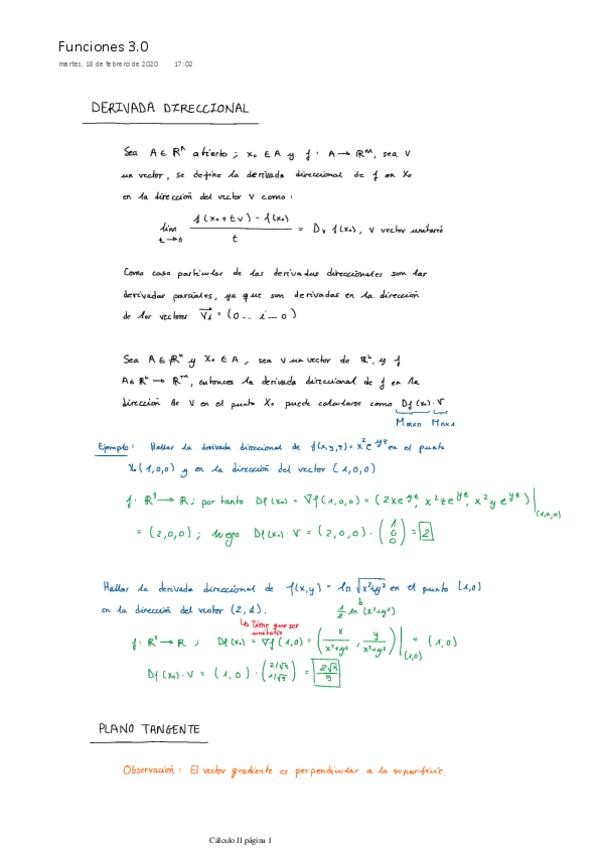 Funciones 3.0
martes, 18 de febrero de 2020 17:02
DERIVADA DIRECCIONAL
Sea A ∈ ℝⁿ abierto ; x₀ ∈ A y f: A → ℝᵐ, sea v
un vector, se define la derivada direccional de f en x₀
en la dirección del vector v como :
lim t→0 (f(x₀+tv) - f(x₀)) / t = Dᵥ f(x₀), v vector unitario
Como caso particular de las derivadas direccionales son las
derivadas parciales, ya que son derivadas en la dirección
de los vectores vᵢ = (0.. i ... 0)
Sea A ∈ ℝⁿ y x₀ ∈ A, sea v un vector de ℝⁿ, y f
A ∈ ℝⁿ → ℝᵐ, entonces la derivada direccional de f en la
dirección de v en el punto x₀ puede calcularse como Df(x₀)·v
Mmxn Mnx1
Ejemplo: Hallar la derivada direccional de f(x,y,z) = x²e^yz en el punto
x₀(1,0,0) y en la dirección del vector (1,0,0)
f: ℝ³ → ℝ ; por tanto Df(x₀) = ∇f(1,0,0) = (2xe^yz, x²ze^yz, x²ye^yz)|(1,0,0)
= (2,0,0) ; luego Df(x₀)·v = (2,0,0)·(1 0 0) = 2
Hallar la derivada direccional de f(x,y) = ln √x²+y² en el punto (1,0)
en la dirección del vector (2,1). 1/2 ln (x²+y²)
↳ Tiene que ser
unitario
f: ℝ² → ℝ ; Df(x₀) = ∇f(1,0) = (x/(x²+y²), y/(x²+y²))|(1,0) = (1,0)
Df(x₀)·v = (1,0)·(2/√5 1/√5) = 2√5/5
PLANO TANGENTE
Observación: El vector gradiente es perpendicular a la superficie.
Cálculo II página 1